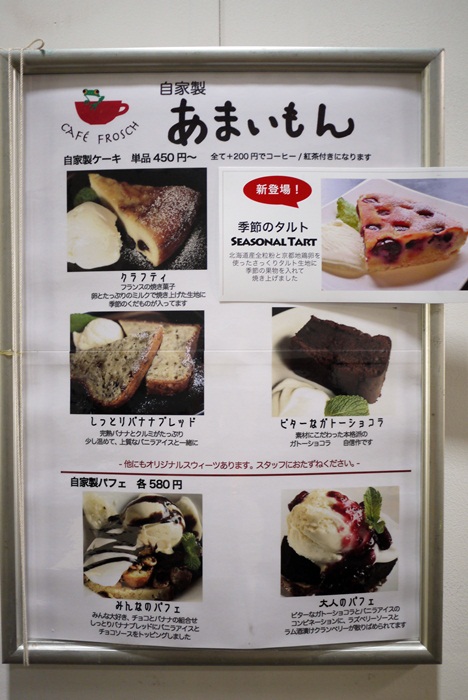 CAFÉ FROSCH
自家製
あまいもん
自家製ケーキ 単品 450円〜 全て+200円でコーヒー/紅茶付きになります
新登場!
季節のタルト
SEASONAL TART
北海道産全粒粉と京都地鶏卵を
使ったさっくりタルト生地に
季節の果物を入れて
焼き上げました
クラフティ
フランスの焼き菓子
卵とたっぷりのミルクで焼き上げた生地に
季節のくだものが入ってます
しっとりバナナブレッド
完熟バナナとクルミがたっぷり
少し温めて、上質なバニラアイスと一緒に
ビターなガトーショコラ
素材にこだわった本格派の
ガトーショコラ 自信作です
- 他にもオリジナルスウィーツあります。スタッフにおたずねください。-
自家製パフェ 各580円
みんなのパフェ
みんな大好き、チョコとバナナの組合せ
しっとりバナナブレッドにバニラアイスと
チョコソースをトッピングしました
大人のパフェ
ビターなガトーショコラとバニラアイスの
コンビネーションに、ラズベリーソースと
ラム酒漬けクランベリーが散りばめられてます